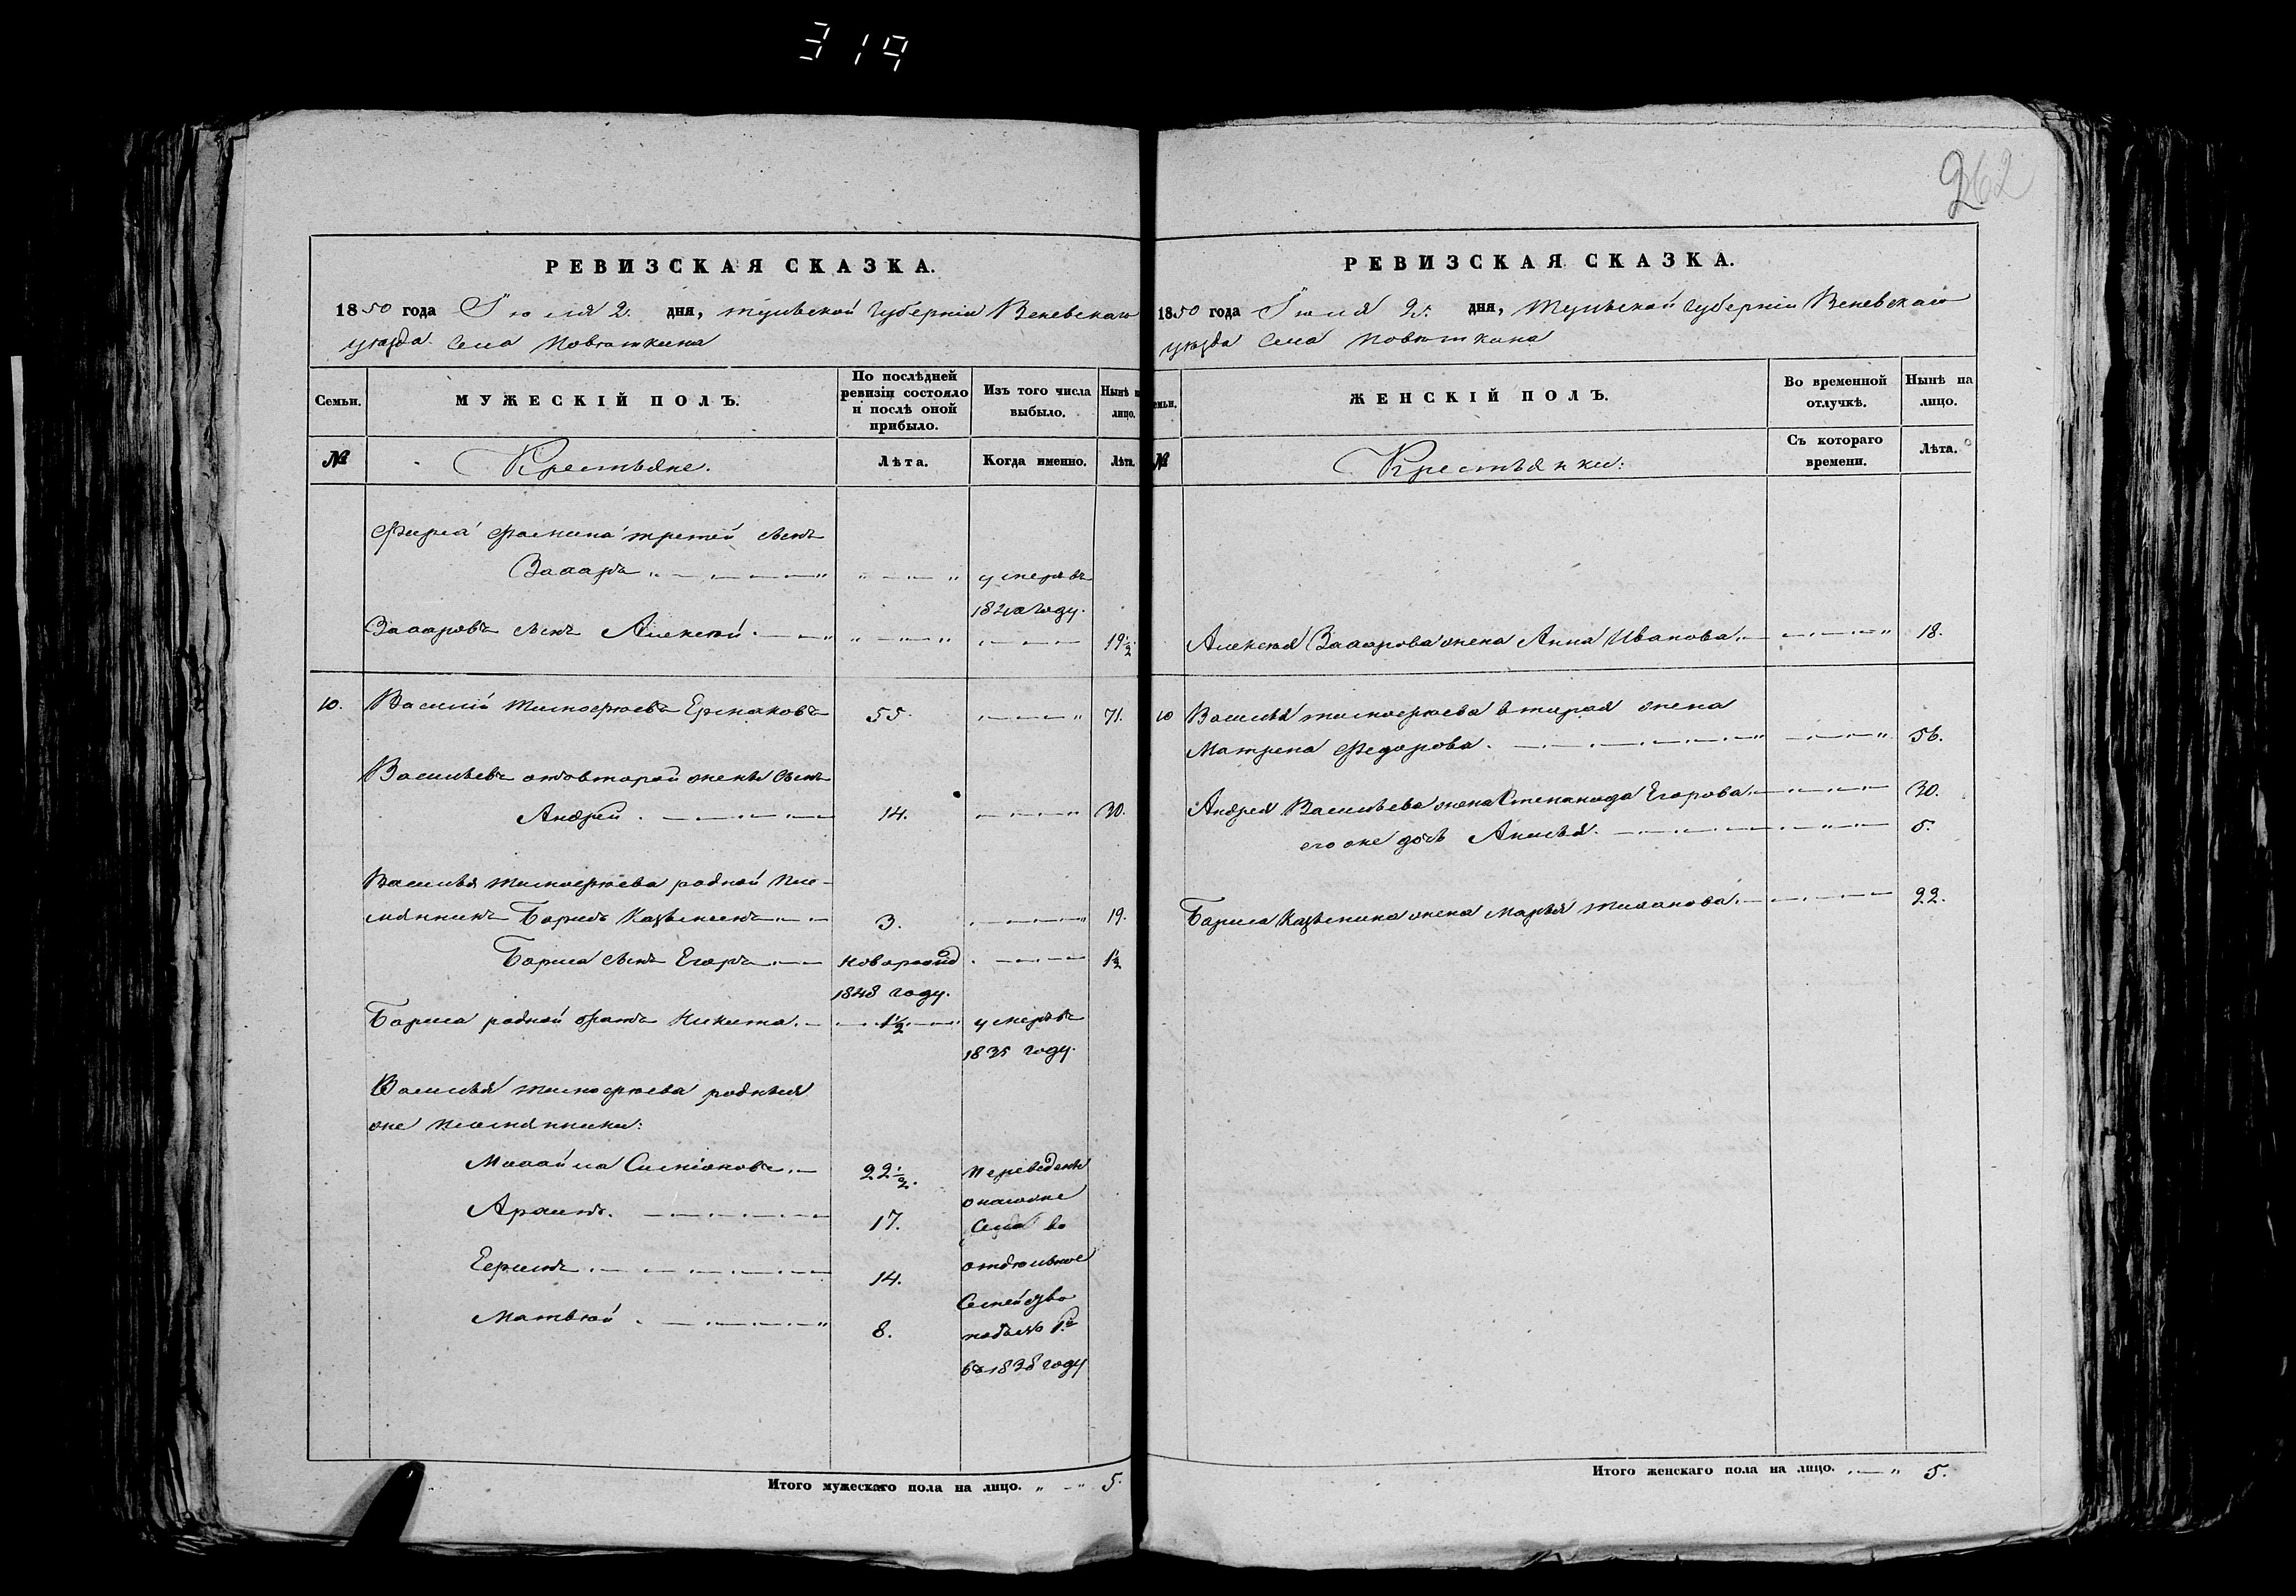 319
262
РЕВИЗСКАЯ СКАЗКА.
1850 года Іюля 2. дня, тульской губерніи Веневскаго
уѣзда села Повѣткина
Семьи.
МУЖЕСКІЙ ПОЛЪ.
По послѣдней ревизіи состояло и послѣ оной прибыло.
Изъ того числа выбыло.
Нынѣ
лицо.
№
Крестьяне.
Лѣта.
Когда именно.
Лѣта.
Фирса Фомина третей сынъ
Захаръ " "
умеръ въ
году.
Захаровъ сынъ Алексѣй " " 19½
10. Василій тимофѣевъ Ермаковъ 55. " 71.
Васильевъ отовторой жены сынъ
Андрей . 14. " 30.
Василья тимофѣева родной пле-
мянникъ Борисъ Кузьминъ 3. " 19.
Бориса сынъ Егоръ новорожд 1½
1848 году.
Бориса родной братъ Никита. 1½ умеръ въ
1835 году.
Василья тимофѣева родныя
же племянники:
Михайла Симіоновъ 22½. Переведены
онагоже
Архипъ. 17. села во
отдѣльное
Ефимъ 14.
Семейство
Матвѣй . " 8. подъ №
въ 1838 году
Итого мужескаго пола на лицо. " " 5.
РЕВИЗСКАЯ СКАЗКА.
1850 года Іюля 2. дня, Тульской губерніи Веневскаго
уѣзда села Повѣткина
ЖЕНСКІЙ ПОЛЪ.
Во временной отлучкѣ.
Нынѣ на лицо.
№
Крестьянки:
Съ котораго времени.
Лѣта.
Алексѣя Захарова жена Анна Иванова " 18.
10 Василья тимофѣева вторая жена
Матрена Федорова. " " 56.
Андрея Васильева жена Степанида Егорова 30.
его же дочь Акилья. " 5.
Бориса Кузьмина жена Марья 22.
Итого женскаго пола на лицо. " 5.